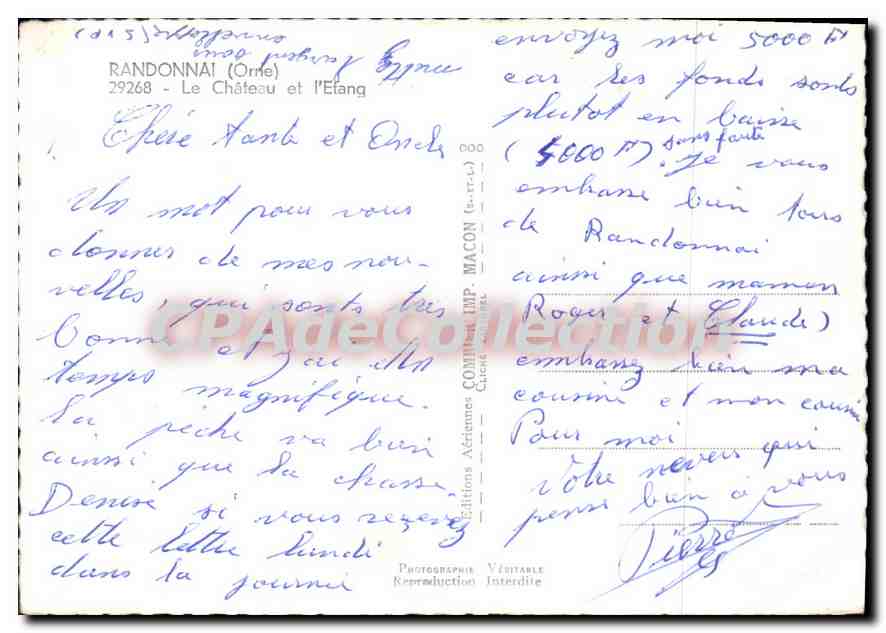 RANDONNAI (Orne)
29268 - Le Château et l'Etang
Chère tante et Oncle
Un mot pour vous
donner de mes nou-
velles, qui sonts très
bonne et j'ai des
temps magnifique.
La pêche va bien
ainsi que la chasse.
Denise si vous recevez
cette lettre lundi
dans la journée
envoyez moi 5000 F
car les fonds sonts
plutot en baisse
(5000 F). sans faute Je vous
embrasse bien tous
de Randonnai
ainsi que maman
Roger et Claude)
embrassez bien ma
cousine et mon cousin
Pour moi
Votre neveu qui
pense bien à vous
Pierre
dans
enveloppe (S.V.P)
Editions Aériennes COMBIER IMP. MACON (S.-ET-L.)
PHOTOGRAPHIE VÉRITABLE
Reproduction Interdite
CPAdeCollection